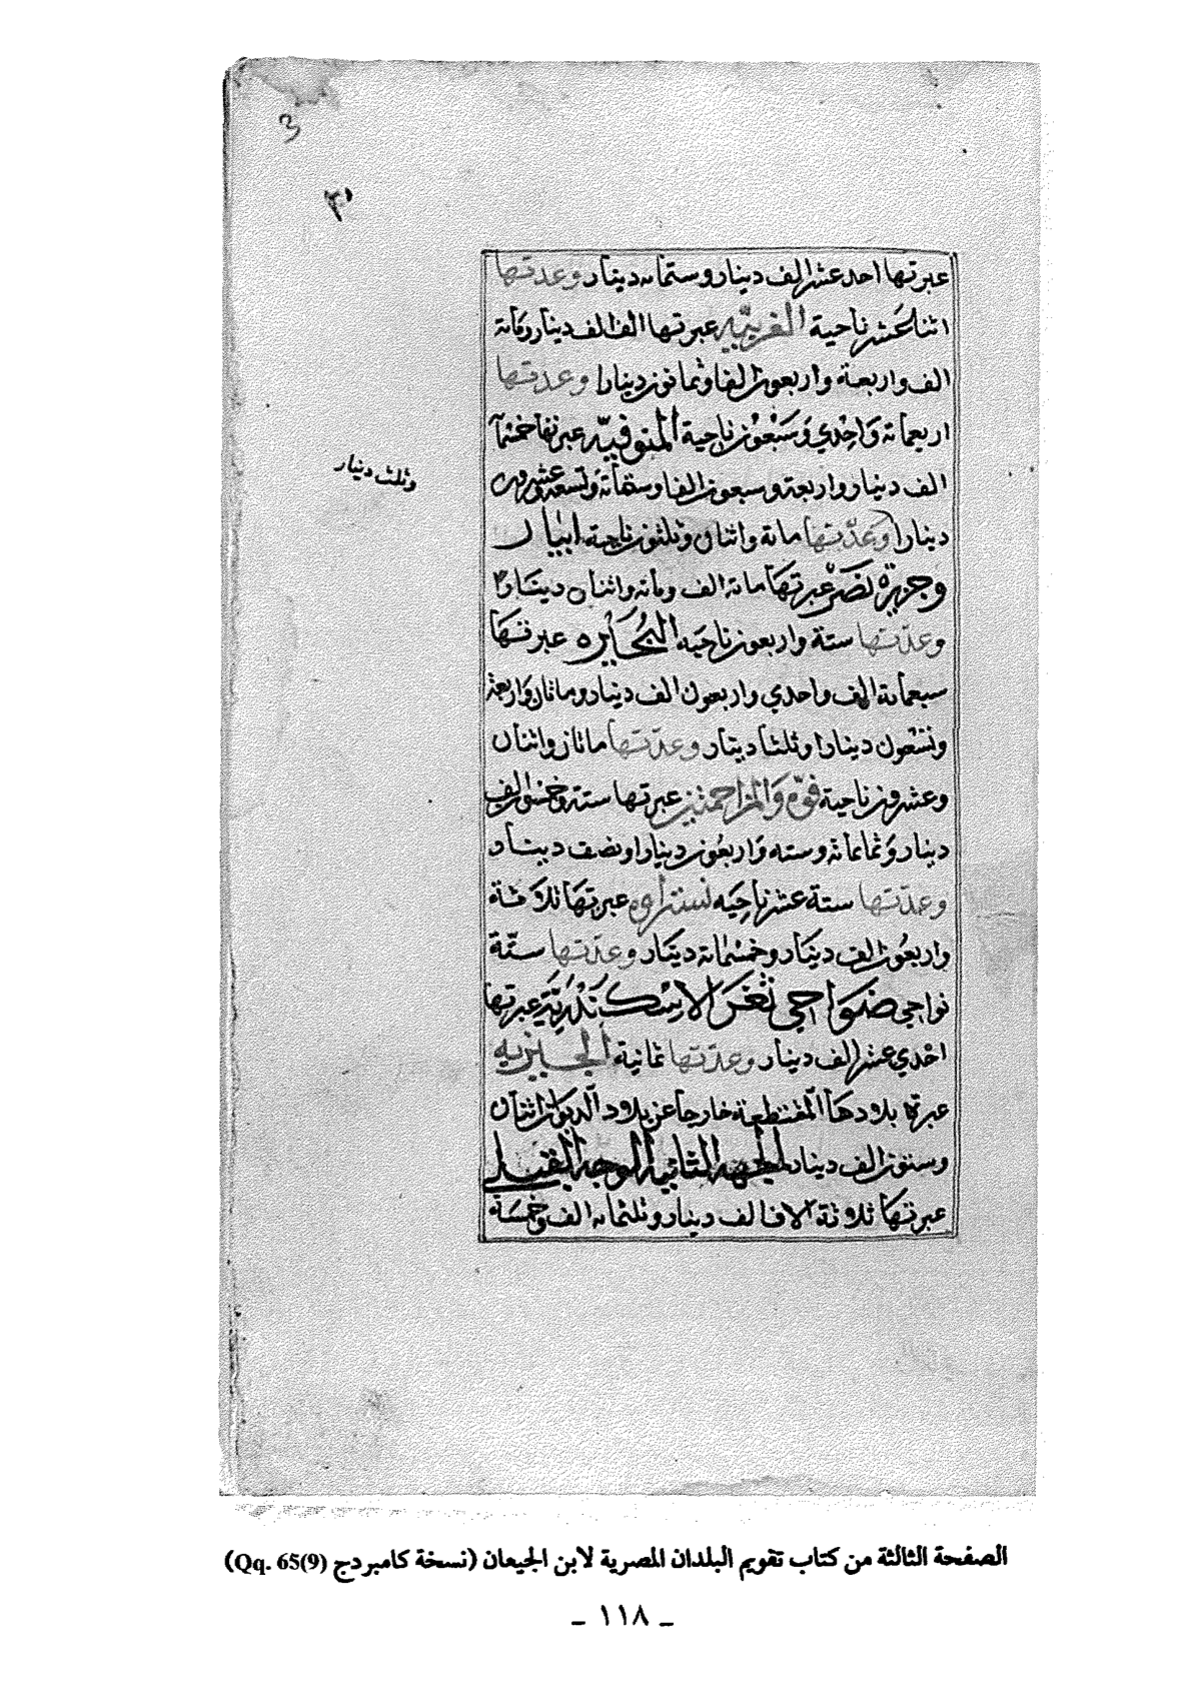 3
٣
عبرتها احد عشر الف دينار وستمائه دينار وعدتها
اثنا عشر ناحية الغربيّه عبرتها الفا الف دينار ومائة
الف واربعة واربعون الفا وثمانون دينارا وعدتها
اربعمائة واحدي وسبعون ناحية المنوفيه عبرتها خمسمائة
الف دينار واربعة وسبعون الفا وستمائة وتسعة وعشرون
وثلث دينار
دينارا وعدّتها مائة واثنان وثلثون ناحية ابيار
وجزيرة نصر عبرتها مائة الف ومائة واثنان دينارا
وعدّتها ستة واربعون ناحيه البحيره عبرتها
سبعمائة الف واحدي واربعون الف دينار ومائتان واربعة
وتسعون دينارا وثلثا دينار وعدّتها مائتان واثنان
وعشرون ناحية فوّه والمزاحمتين عبرتها ستة وخمسون الف
دينار وثمانمائة وسته واربعون دينارا ونصف دينار
وعدّتها ستة عشر ناحيه نستراوه عبرتها ثلاثة
واربعون الف دينار وخمسمائة دينار وعدّتها ستّة
نواحي ضواحي ثغر الاسكندريّة عبرتها
احدي عشر الف دينار وعدّتها ثمانية الجيزيه
عبرة بلادها المقتطعة خارجا عن بلاد الديوان اثنان
وستون الف دينار الجهه الثانية الوجه القبلي
عبرتها ثلاثة الاف الف دينار وثلثمائه الف وخمسة
الصفحة الثالثة من كتاب تقويم البلدان المصرية لابن الجيعان (نسخة كامبردج Qq. 65(9))
ـ ١١٨ ـ